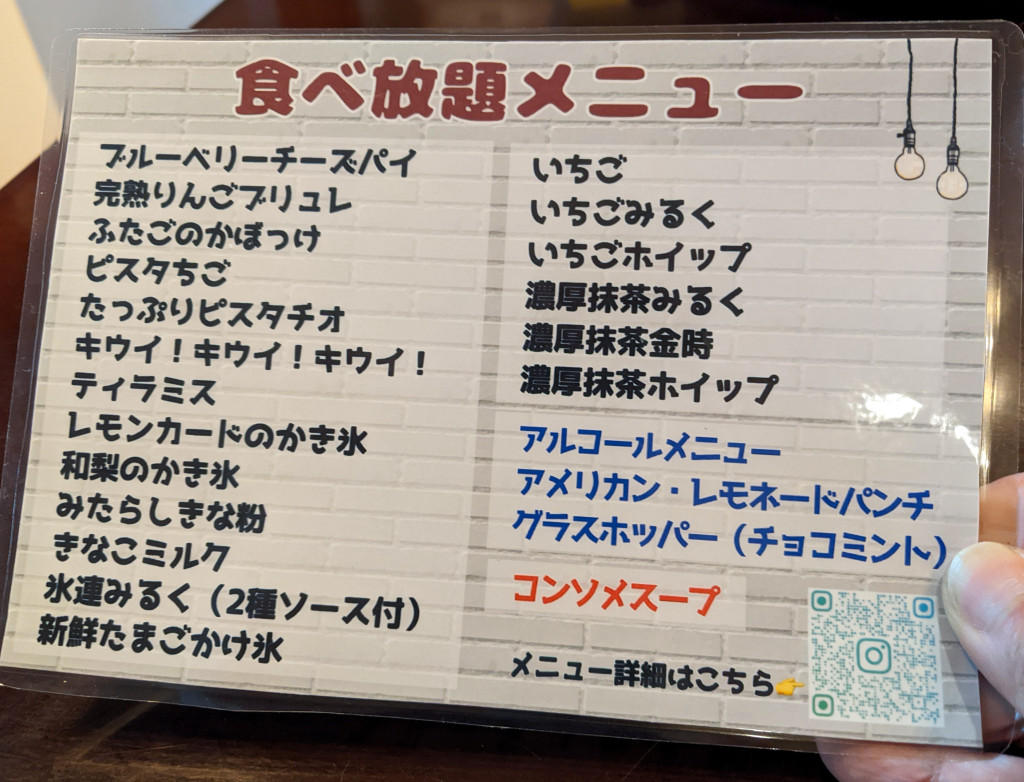 食べ放題メニュー
ブルーベリーチーズパイ
完熟りんごブリュレ
ふたごのかぼっけ
ピスタちご
たっぷりピスタチオ
キウイ！キウイ！キウイ！
ティラミス
レモンカードのかき氷
和梨のかき氷
みたらしきな粉
きなこミルク
氷連みるく（2種ソース付）
新鮮たまごかけ氷
いちご
いちごみるく
いちごホイップ
濃厚抹茶みるく
濃厚抹茶金時
濃厚抹茶ホイップ
アルコールメニュー
アメリカン・レモネードパンチ
グラスホッパー（チョコミント）
コンソメスープ
メニュー詳細はこちら👉